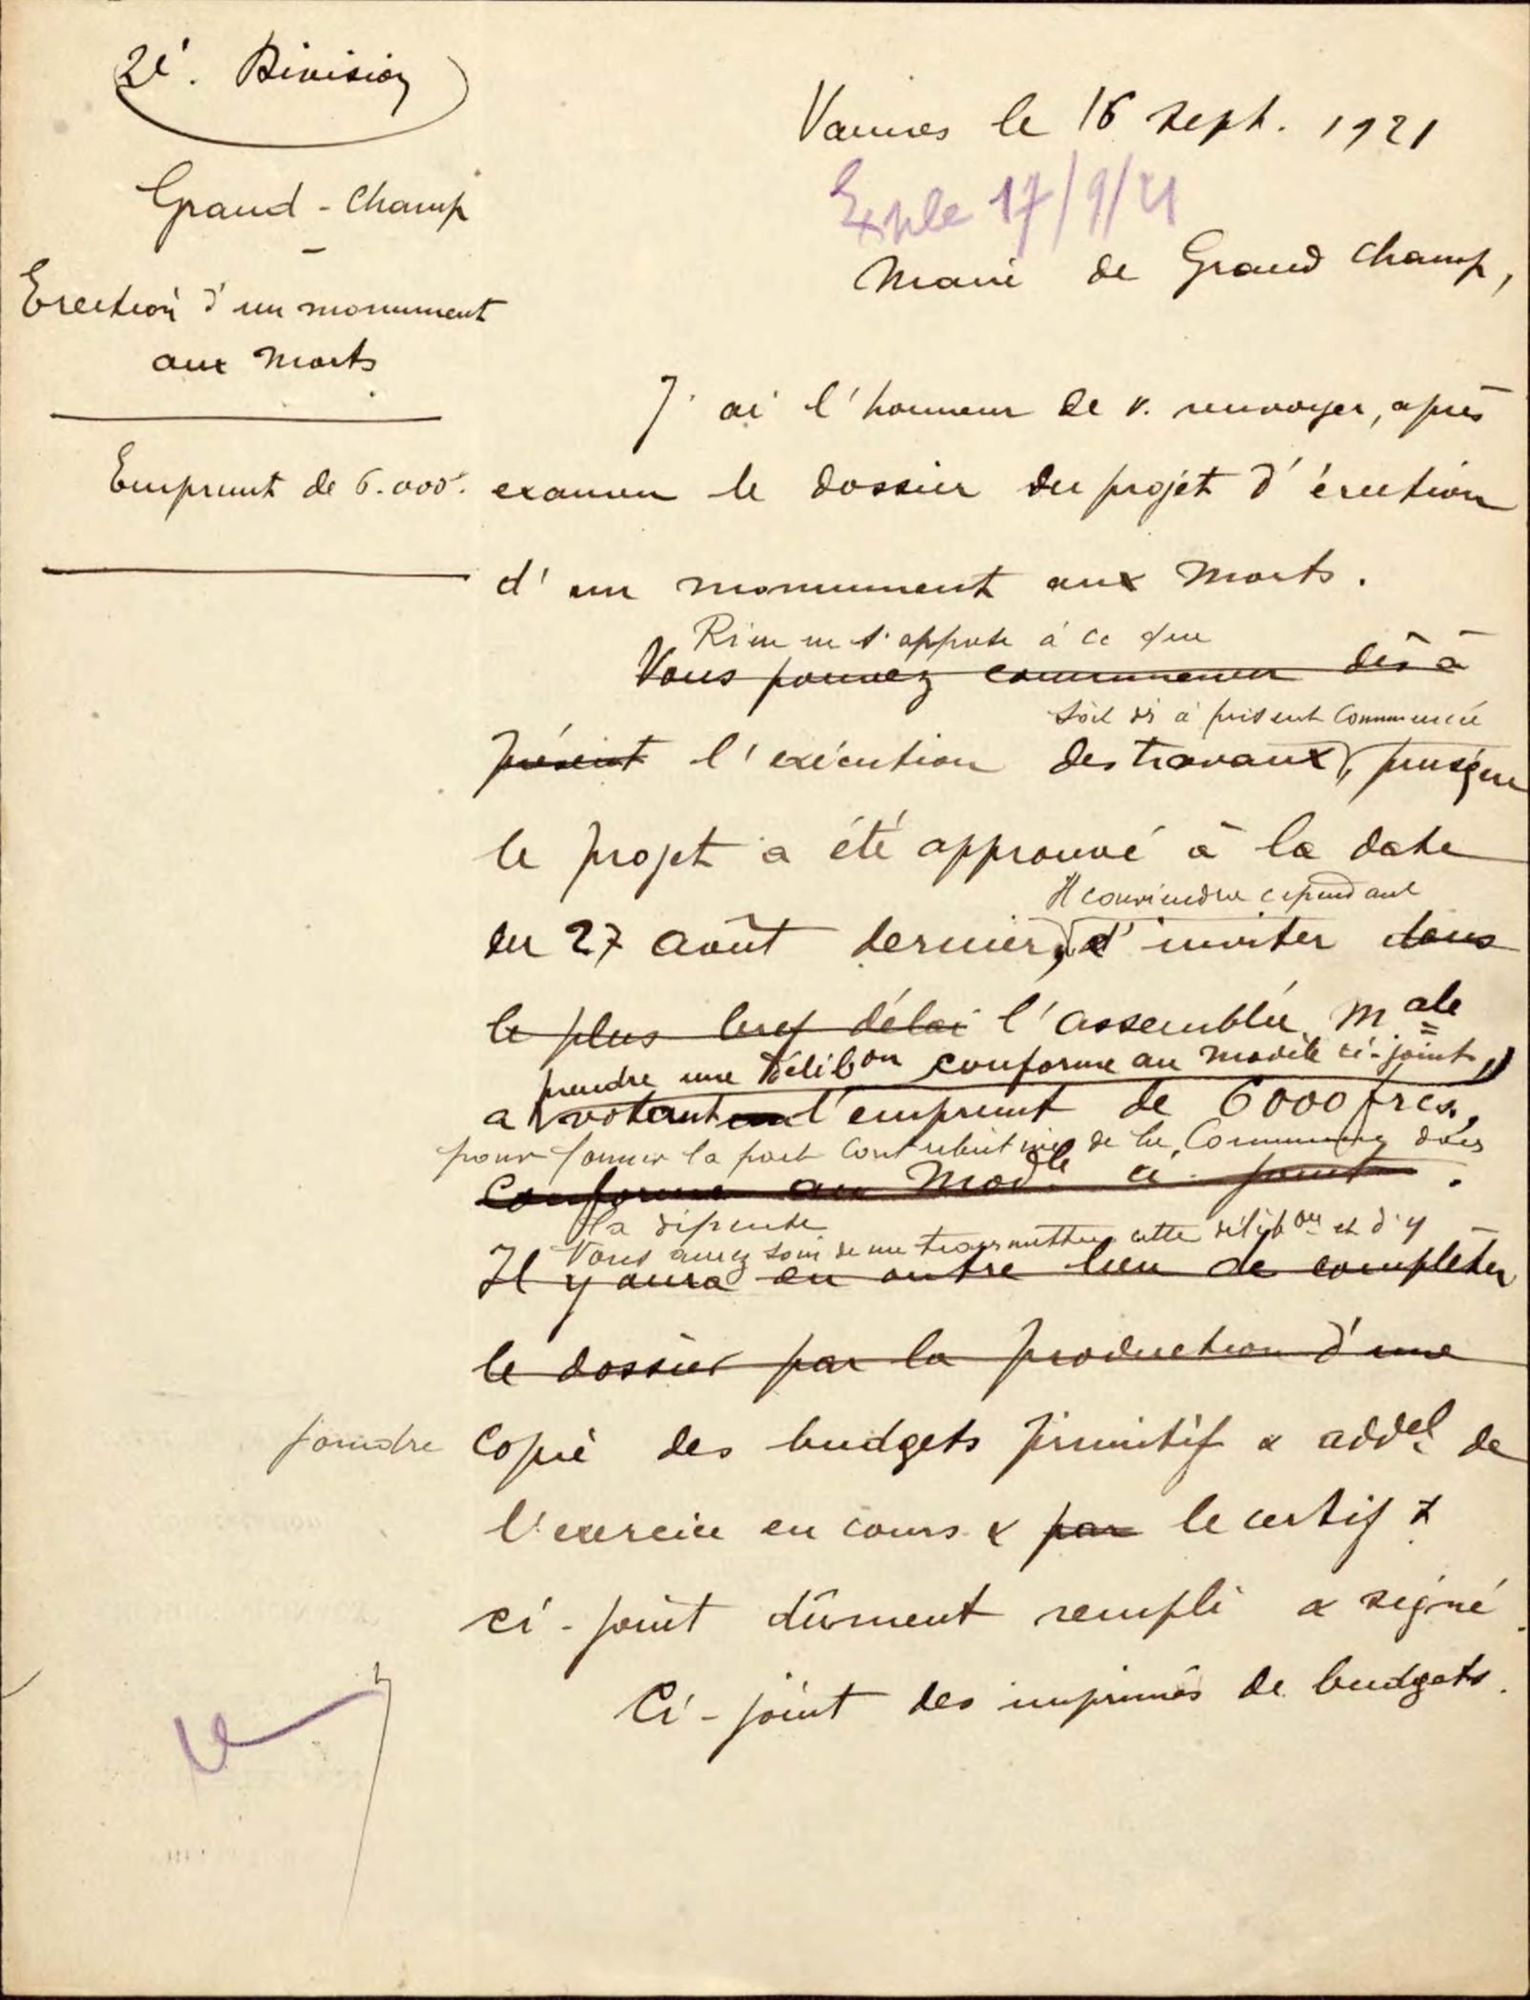 2è. Division
Vannes le 16 sept. 1921
Exple 17/9/21
Grand-Champ
Maire de Grand Champ,
Erection d'un monument
aux Morts
J'ai l'honneur de v. renvoyer, après
Emprunt de 6.000f.
examen le dossier du projet d'érection
d'un monument aux Morts.
Rien ne s'oppose à ce que
Vous pouvez commencer dès à
soit dès à présent commencée
présent l'exécution des travaux, puisque
le projet a été approuvé à la date
Il conviendra cependant
du 27 août dernier, d'inviter dans
le plus bref délai l'assemblée Male
prendre une Délibon conforme au modèle ci-joint,
a votant l'emprunt de 6000 frcs.
pour former la part contributive de la Commune dans
conforme au Modle ci-joint.
la dépense
Vous aurez soin de me transmettre cette délibon et d'y
Il y aura en outre lieu de compléter
le dossier par la production d'une
joindre copie des budgets primitif & addel de
l'exercice en cours & par le certif t
ci-joint dûment rempli & signé.
Ci-joint des imprimés de budgets.